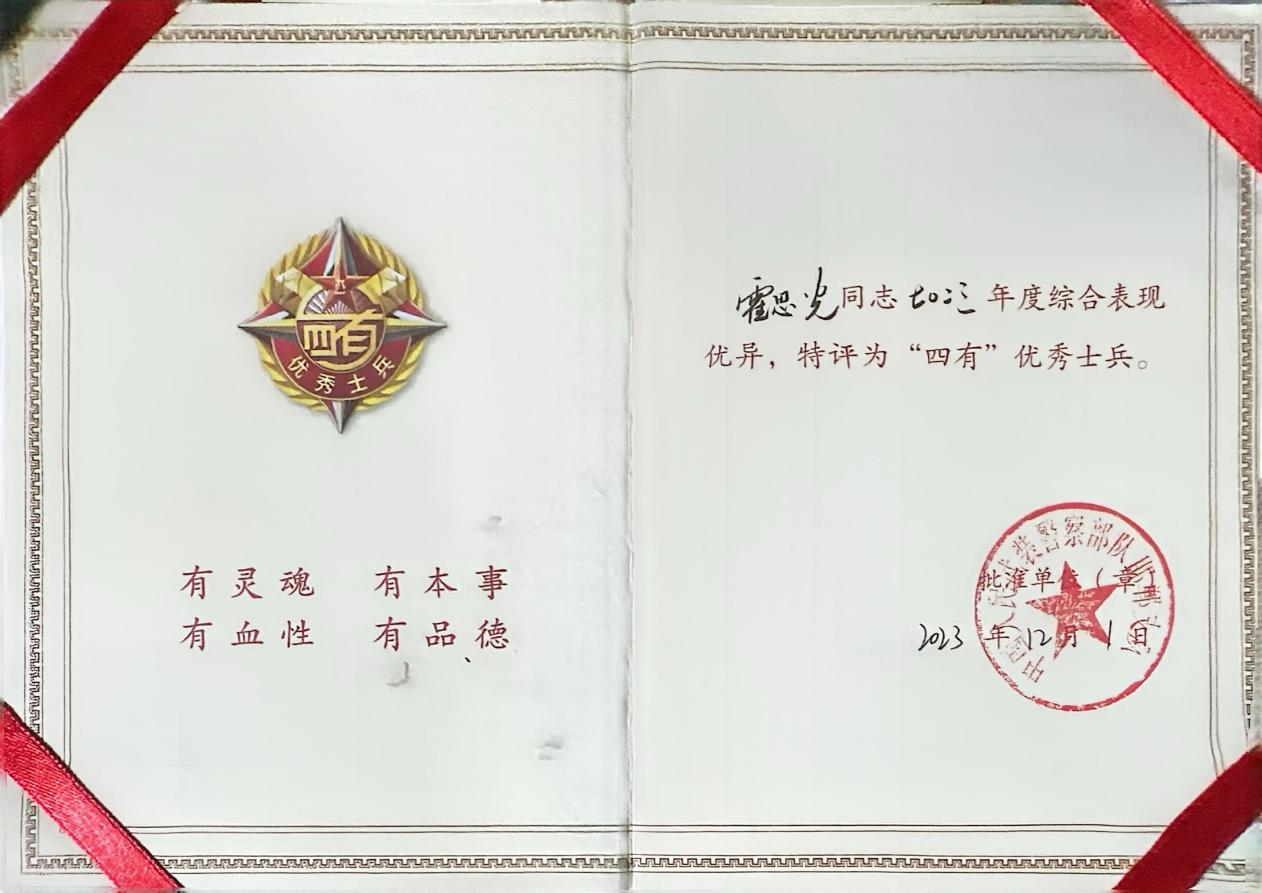 四有
优秀士兵
有灵魂 有本事
有血性 有品德
霍思光同志二〇二三年度综合表现
优异，特评为“四有”优秀士兵。
中国人民武装警察部队
批准单位（章）
2023年12月1日